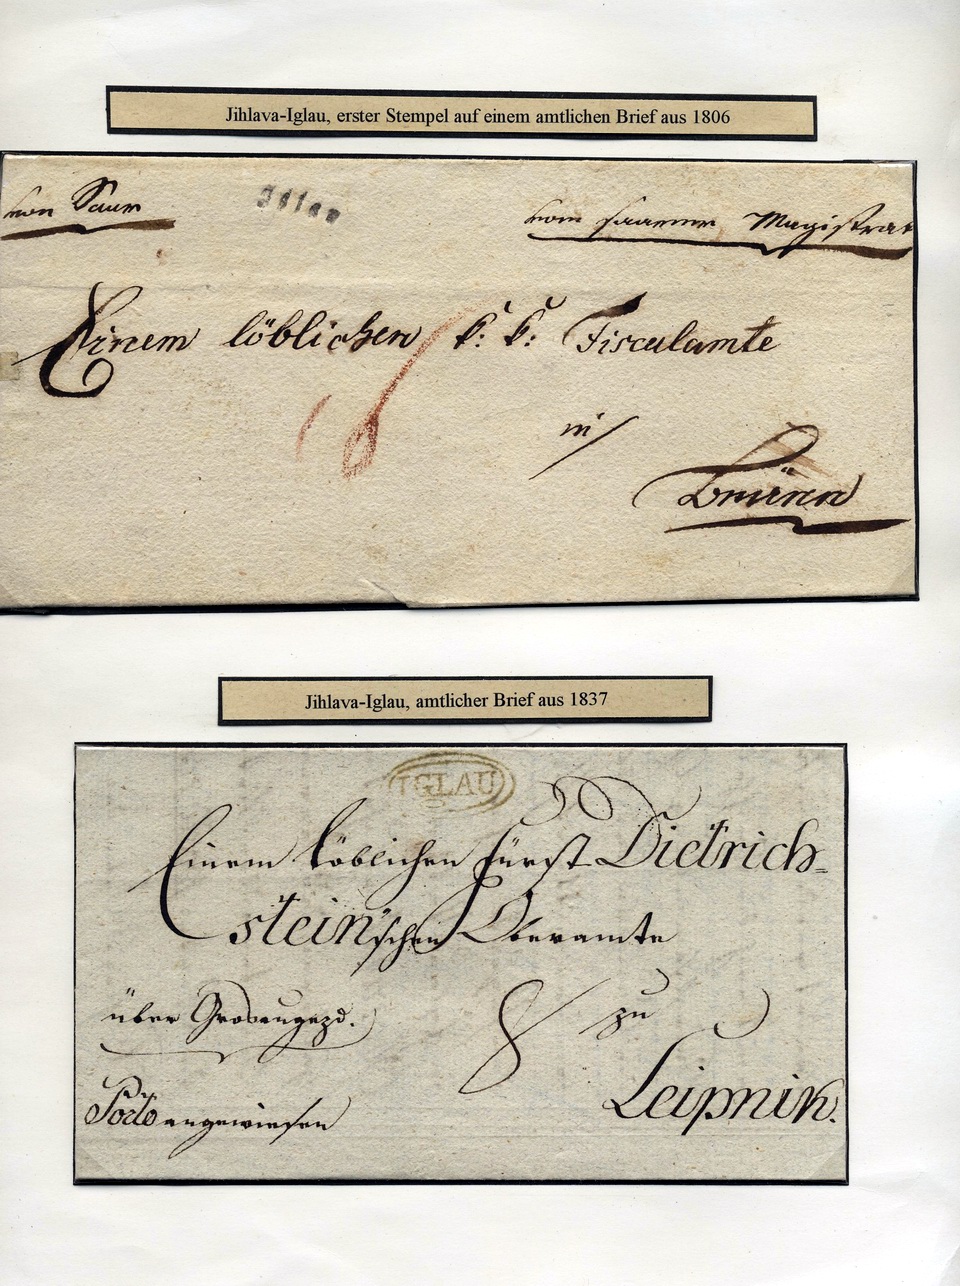 Jihlava-Iglau, erster Stempel auf einem amtlichen Brief aus 1806
von Saur
Iglau
vom saarer Magistrat
Einem löblichen k: k: Fiscalamte
in
Brünn
Jihlava-Iglau, amtlicher Brief aus 1837
IGLAU
Einem löblichen Fürst Dietrich=
stein'schen Oberamte
über Grosaugezd.
8 zu
Porto angewiesen
Leipnik.